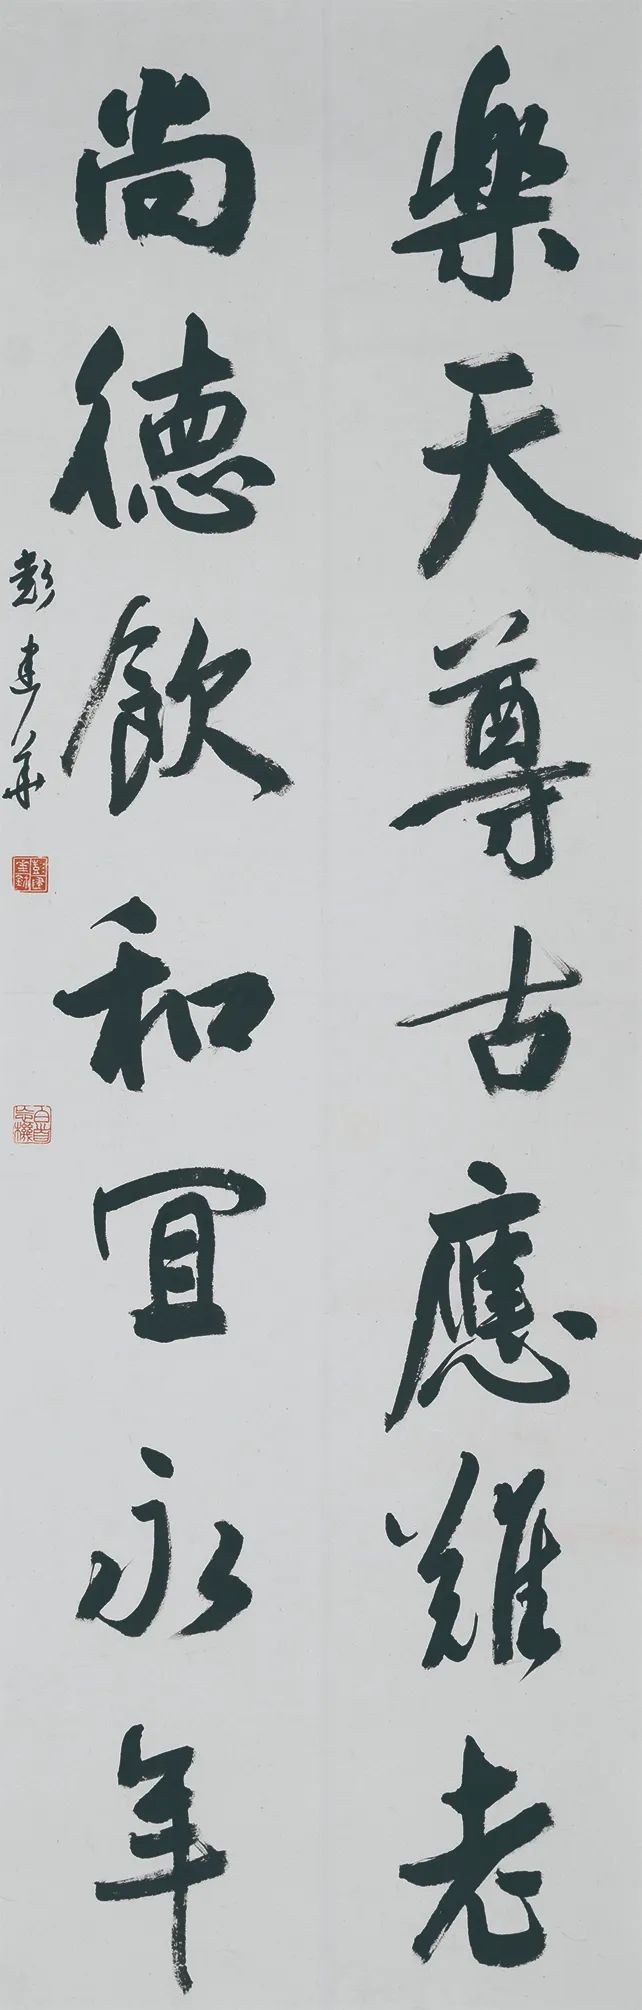 樂天尊古應難老
尚德飲和宜永年
彭建華